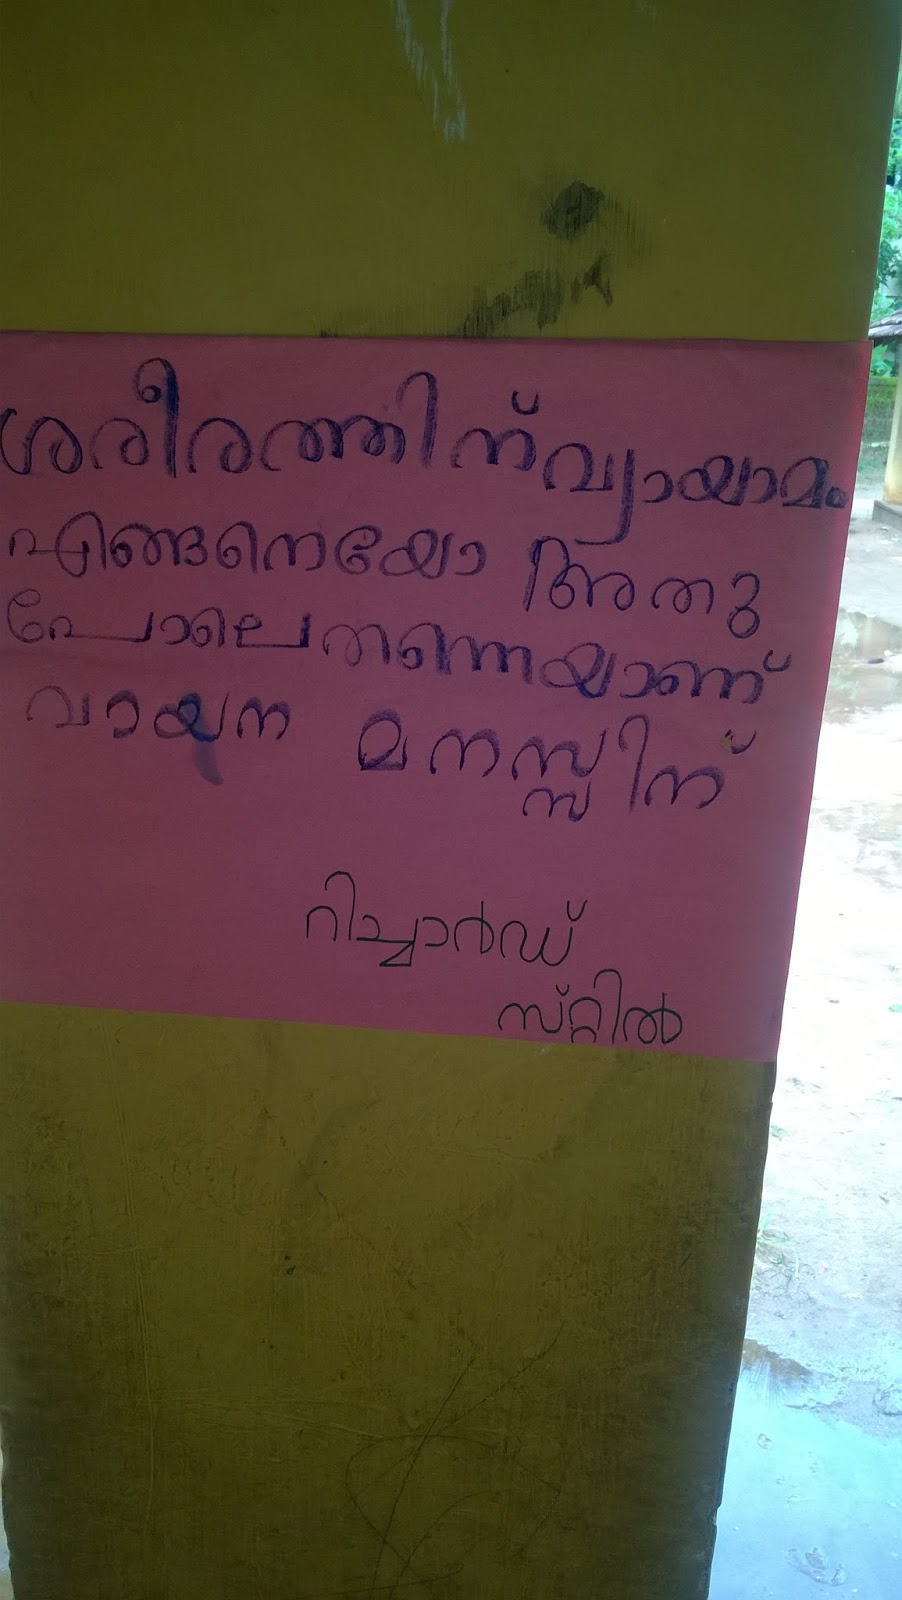 ശരീരത്തിന് വ്യായാമം
എങ്ങനെയോ അതു
പോലെതന്നെയാണ്
വായന മനസ്സിന്
റിച്ചാർഡ്
സ്റ്റിൽ